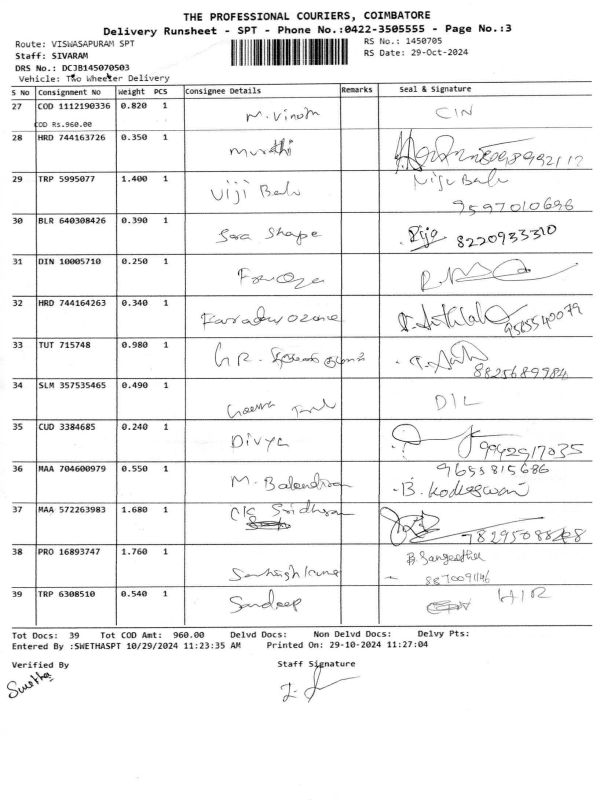 THE PROFESSIONAL COURIERS, COIMBATORE
Delivery Runsheet - SPT - Phone No.:0422-3505555 - Page No.:3
Route: VISWASAPURAM SPT
RS No.: 1450705
Staff: SIVARAM
RS Date: 29-Oct-2024
DRS No.: DCJB145070503
Vehicle: Two Wheeler Delivery
S No Consignment No Weight PCS Consignee Details Remarks Seal & Signature
27 COD 1112190336 0.820 1 M. Vinoth CIN
COD Rs.960.00
28 HRD 744163726 0.350 1 Murthi
29 TRP 5995077 1.400 1 Viji Balu Viju Balu
9597010696
30 BLR 640308426 0.390 1 Sara Shape 8220933310
31 DIN 10005710 0.250 1
32 HRD 744164263 0.340 1 9585540079
33 TUT 715748 0.980 1 GR.
8825689984
34 SLM 357535465 0.490 1 DIL
35 CUD 3384685 0.240 1 Divya 9942917035
36 MAA 704600979 0.550 1 M. 9655815686
B. Kodieswari
37 MAA 572263983 1.680 1 Sridhran
38 PRO 16893747 1.760 1 B. Sangeetha
8870091146
39 TRP 6308510 0.540 1 Sandeep HIR
Tot Docs: 39 Tot COD Amt: 960.00 Delvd Docs: Non Delvd Docs: Delvy Pts:
Entered By :SWETHASPT 10/29/2024 11:23:35 AM Printed On: 29-10-2024 11:27:04
Verified By Staff Signature
Swetha